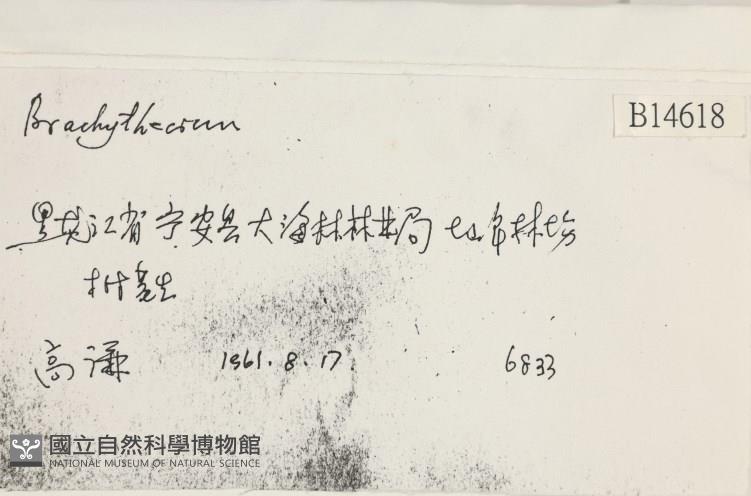 Brachythecium
B14618
黑龙江省宁安县大海林林业局 七峰林场
树
高谦 1961.8.17. 6833
國立自然科學博物館
NATIONAL MUSEUM OF NATURAL SCIENCE